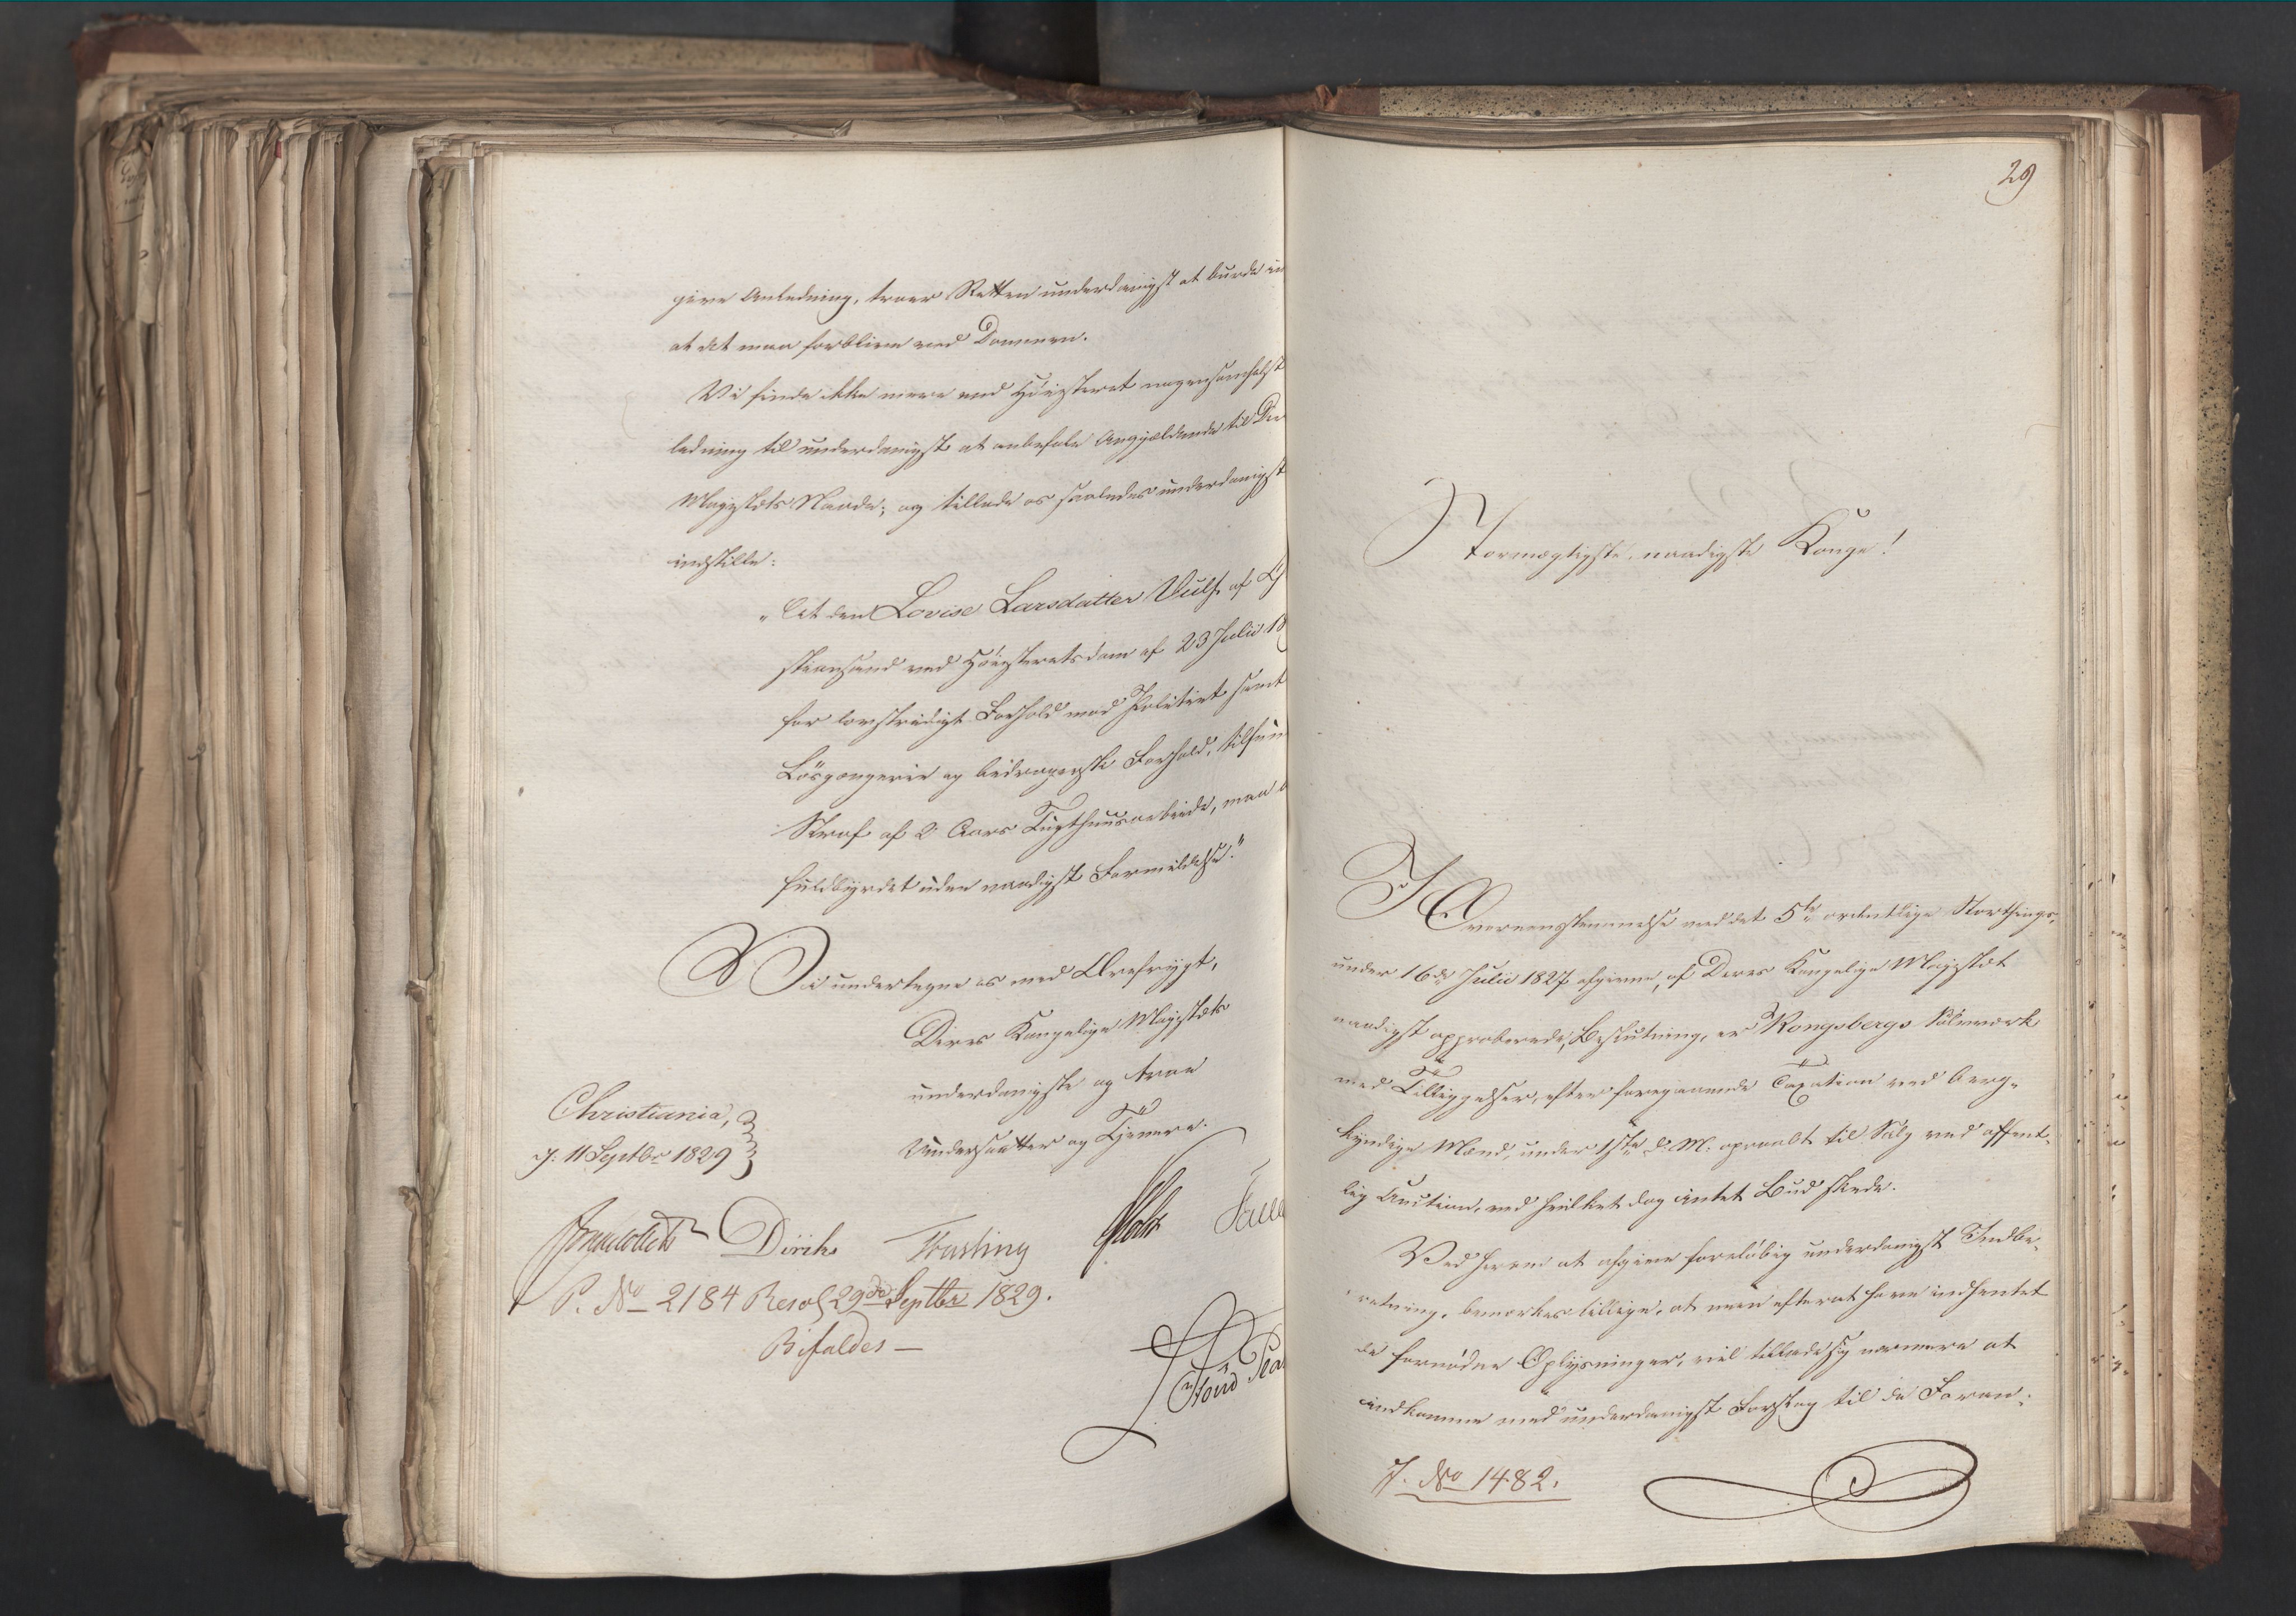 give Anledning, troer Retten underdanigst at burde in
at det maa forblive ved Dommen.
Vi finde ikke mere end Høiesteret nogensomhelst
ledning til underdanigst at anbefale Angjældende til Der
Majestæts Naade; og tillade os saaledes underdanigst
indstille:
"At den Lovise Larsdatter Vulf af
stiansund ved Høiesteretsdom af 23 Julii 18
for lovstridigt Forhold mod Politiet samt
Løsgængerie og bedragersk Forhold, tilfun
Straf af 2 Aars Tugthuusarbeide, maa
fuldbyrdet uden naadigst Formildelse."
Vi undertegne os med Ærefrygt,
Deres Kongelige Majestæts
underdanigste og troe
Undersaatter og Tjenere.
Christiania,
d: 11 Septbr 1829
Diriks Fasting
P. No 2184 Resol 29de Septbr 1829.
Bifaldes —
29
Stormægtigste, naadigste Konge!
I Overeensstemmelse med det 5te ordentlige Storthings,
under 16de Julii 1827 afgivne, af Deres Kongelige Majestæt
naadigst approberede, Beslutning, er Kongsbergs Sølvværk
med Tilliggelser, efter foregaaende Taxation ved berg-
kyndige Mænd, under 1ste d. M. opraabt til Salg ved offent-
lig Auction, ved hvilket dog intet Bud skede.
Ved herom at afgive foreløbig underdanigst Indbe-
retning, bemærkes tillige, at man efterat have indhentet
de fornødne Oplysninger, vil tillade sig nærmere at
indkomme med underdanigst Forslag til de Foran-
J. No 1482.